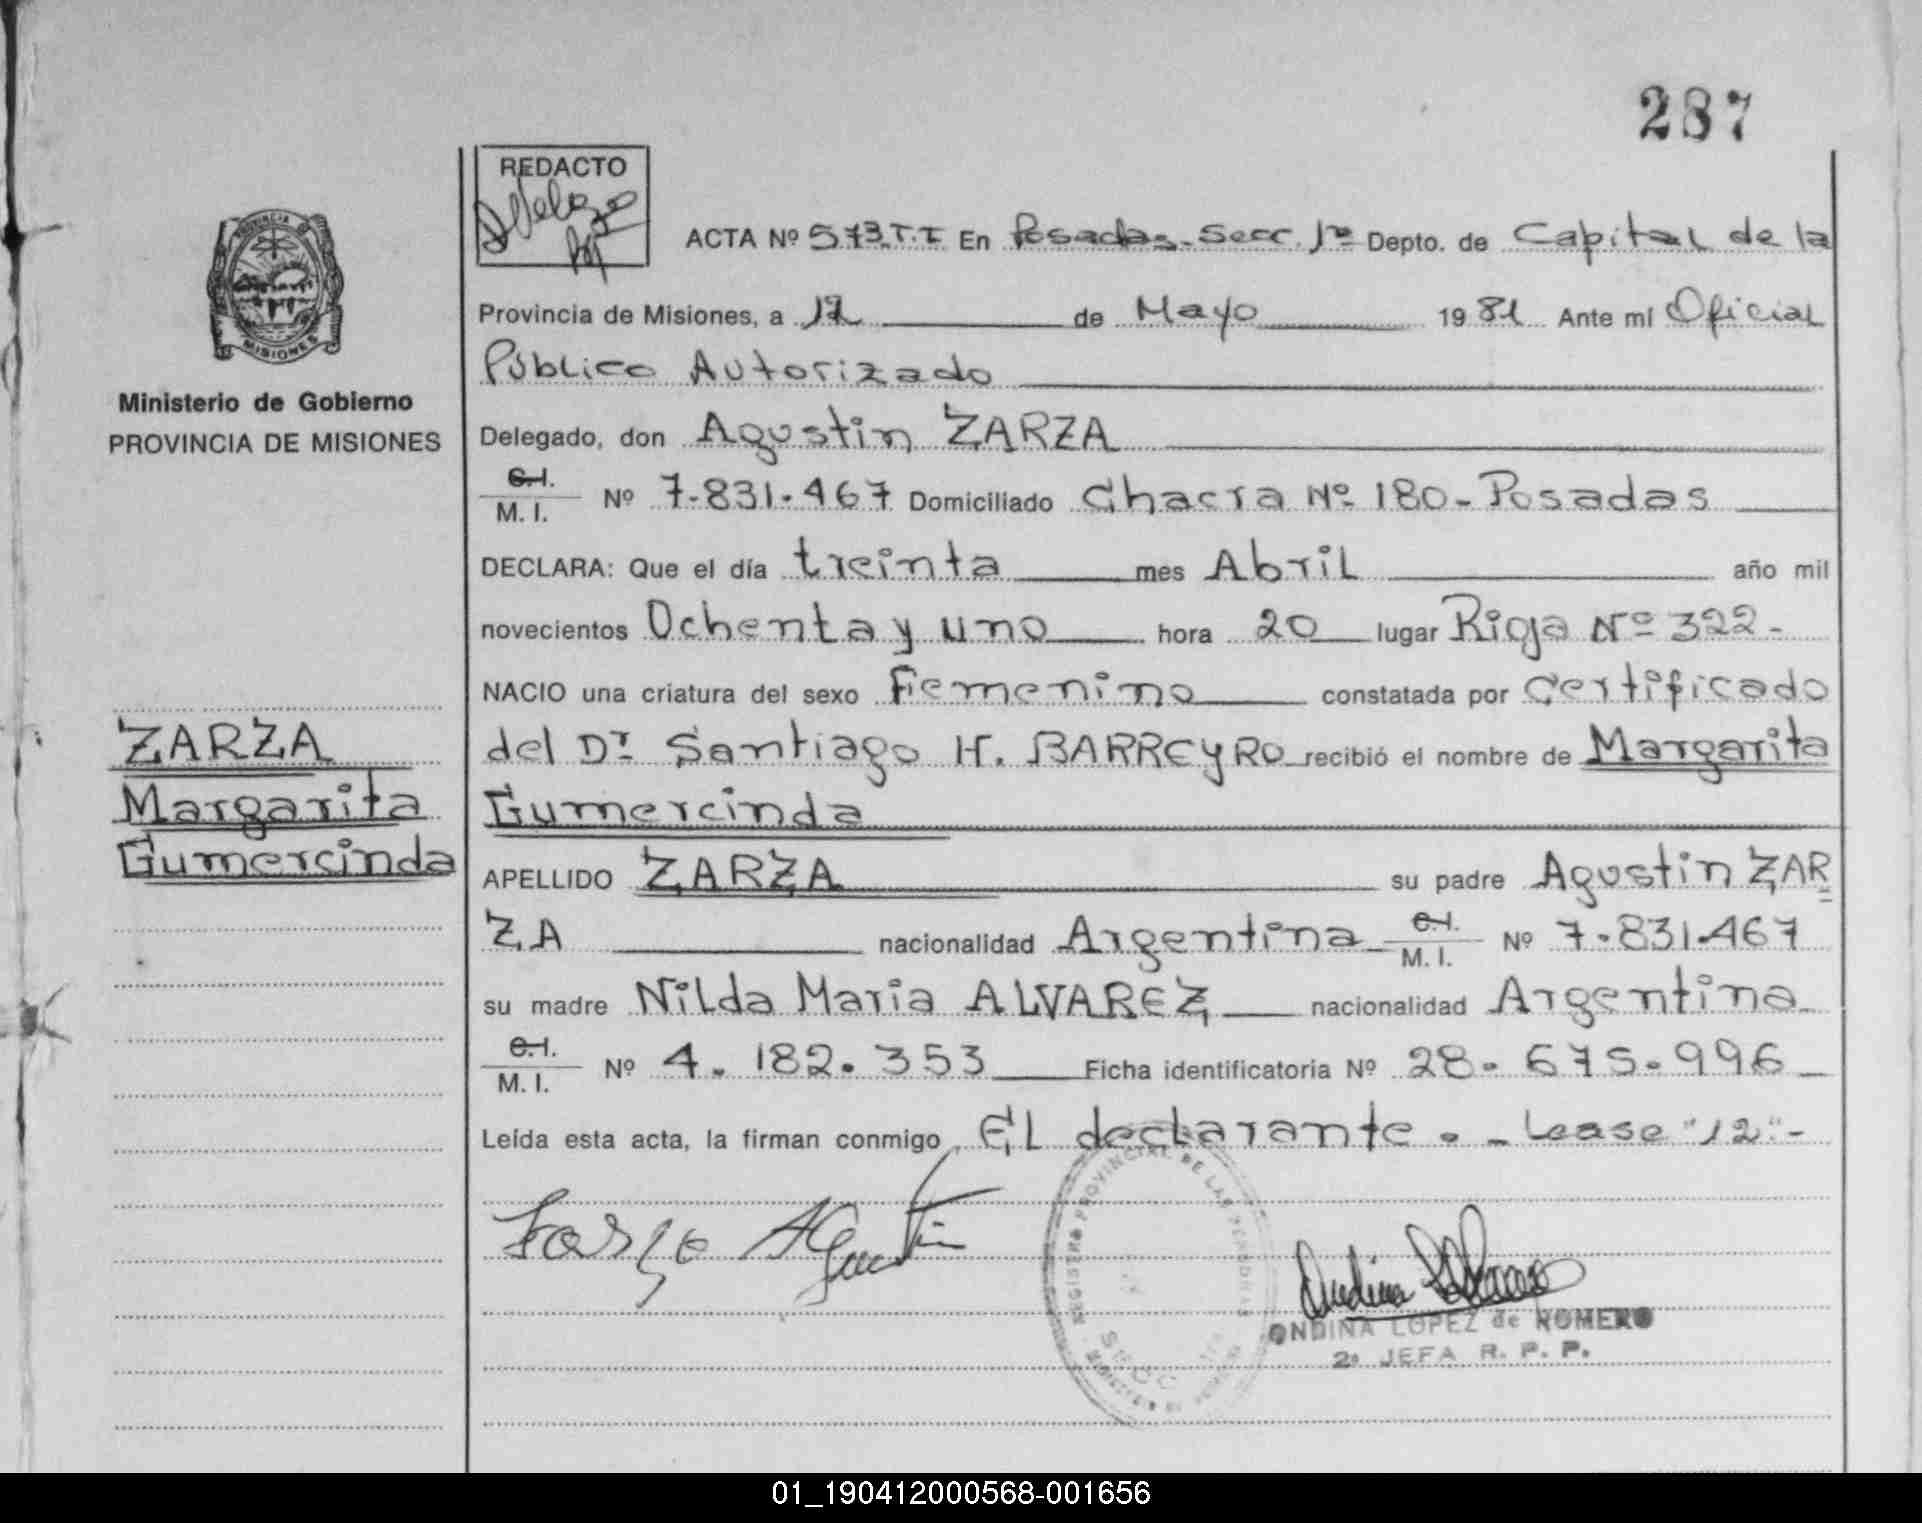 287
REDACTO
ACTA Nº 573.T.I En Posadas-Secc. 1ª Depto. de Capital de la
Provincia de Misiones, a 12 de Mayo 1981 Ante mi Oficial
Público Autorizado
Delegado, don Agustin ZARZA
C.I.
M. I. Nº 7.831.467 Domiciliado Chacra Nº 180-Posadas
DECLARA: Que el día treinta mes Abril año mil
novecientos Ochenta y uno hora 20 lugar Rioja Nº 322-
NACIO una criatura del sexo Femenino constatada por Certificado
del Dr Santiago H. BARREYRO recibió el nombre de Margarita
Gumercinda
APELLIDO ZARZA su padre Agustin ZAR
ZA nacionalidad Argentina C.I. M. I. Nº 7.831.467
su madre Nilda Maria ALVAREZ nacionalidad Argentina
C.I.
M. I. Nº 4.182.353 Ficha identificatoria Nº 28.675.996
Leída esta acta, la firman conmigo El declarante.- Lease "12"-
Zarza Agustin
REGISTRO PROVINCIAL DE LAS PERSONAS
SECC
ONDINA LOPEZ de ROMERO
2º JEFA R. P. P.
PROVINCIA DE
MISIONES
Ministerio de Gobierno
PROVINCIA DE MISIONES
ZARZA
Margarita
Gumercinda
01_190412000568-001656